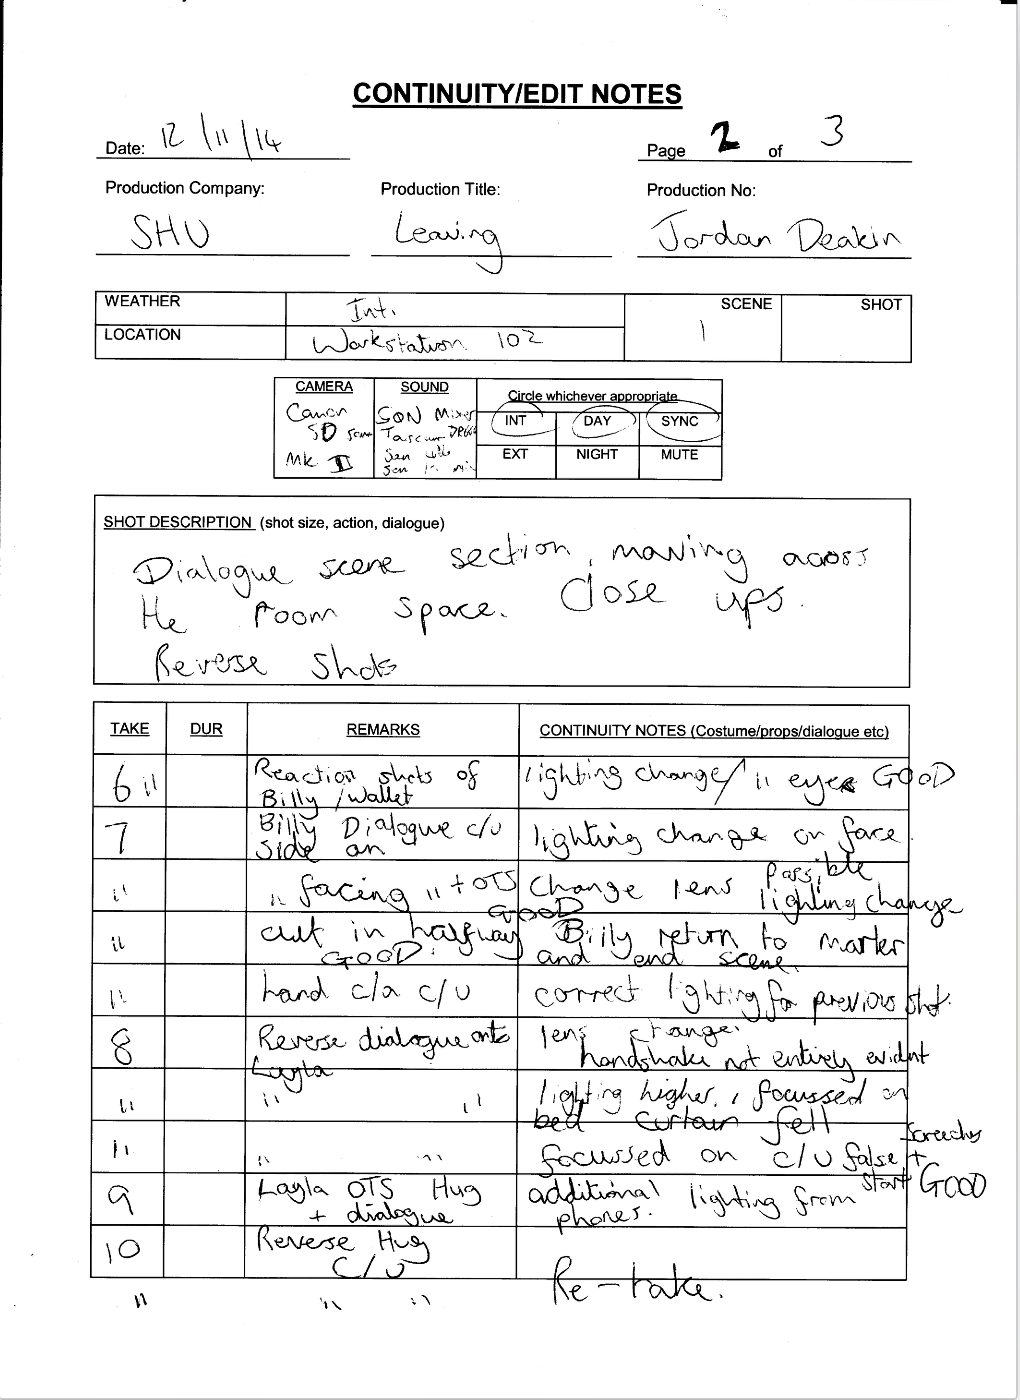 CONTINUITY/EDIT NOTES
Date: 12/11/14
Page 2 of 3
Production Company: Production Title: Production No:
SHU Leaving Jordan Deakin
WEATHER Int. SCENE SHOT
LOCATION Workstation 102 1
CAMERA SOUND Circle whichever appropriate
Canon SQN Mixer
5D Tascam
Mk II Sen
Sen
INT DAY SYNC
EXT NIGHT MUTE
SHOT DESCRIPTION (shot size, action, dialogue)
Dialogue scene section, moving across
the room space. Close ups.
Reverse Shots
TAKE DUR REMARKS CONTINUITY NOTES (Costume/props/dialogue etc)
6 " Reaction shots of lighting change/ " eyes GOOD
Billy /wallet
7 Billy Dialogue c/u lighting change on face.
Side on
" " facing " + OTS Change lens Possible
GOOD lighting change
" cut in halfway Billy return to marker
GOOD. and end scene.
" hand c/a c/u correct lighting for previous shot.
8 Reverse dialogue onto lens change.
Layla handshake not entirely evident
" " " lighting higher, focussed on
bed curtain fell
" " " focussed on c/u false + GOOD
start
9 Layla OTS Hug additional lighting from
+ dialogue phones.
10 Reverse Hug
C/U
" " " Re-take.